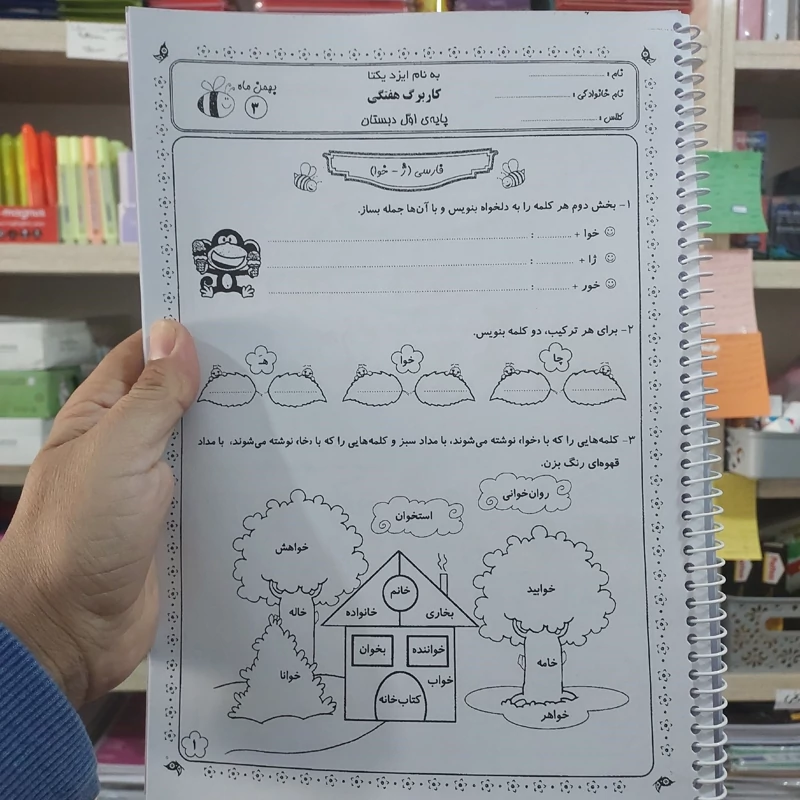 به نام ایزد یکتا
کاربرگ هفتگی
پایه‌ی اوّل دبستان
نام :
نام خانوادگی :
کلاس :
بهمن ماه
۳
فارسی (ژ - خوا)
۱- بخش دوم هر کلمه را به دلخواه بنویس و با آن‌ها جمله بساز.
خوا + ............ :
ژا + ............ :
خور + ............ :
۲- برای هر ترکیب، دو کلمه بنویس.
خوا
۳- کلمه‌هایی را که با «خوا» نوشته می‌شوند، با مداد سبز و کلمه‌هایی را که با «خا» نوشته می‌شوند، با مداد
قهوه‌ای رنگ بزن.
روان‌خوانی
استخوان
خواهش
خوابید
خانم
خاله
خانواده
بخاری
بخوان
خواننده
خامه
خوانا
خواب
کتاب‌خانه
خواهر
۱